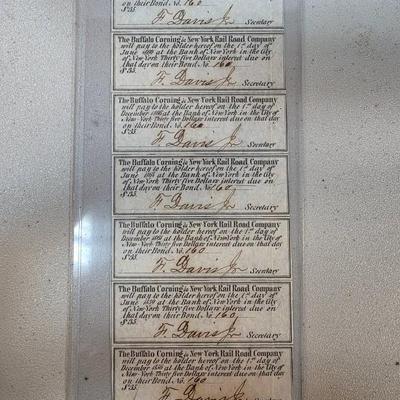 on their Bond. No. 160
$35. F. Davis Jr Secretary
The Buffalo Corning & New York Rail Road Company
will pay to the holder hereof on the 1st day of
June at the Bank of New York in the City
of New-York Thirty five Dollars interest due on
that day on their Bond. No. 160
$35. F. Davis Jr Secretary
The Buffalo Corning & New York Rail Road Company
will pay to the holder hereof on the 1st day of
December at the Bank of New York in the City of
New-York Thirty five Dollars interest due on that day
on their Bond. No. 160
$35. F. Davis Jr Secretary
The Buffalo Corning & New York Rail Road Company
will pay to the holder hereof on the 1st day of
June at the Bank of New York in the City
of New-York Thirty five Dollars interest due on
that day on their Bond. No. 160
$35. F. Davis Jr Secretary
The Buffalo Corning & New York Rail Road Company
will pay to the holder hereof on the 1st day of
December at the Bank of New York in the City of
New-York Thirty five Dollars interest due on that day
on their Bond. No. 160
$35. F. Davis Jr Secretary
The Buffalo Corning & New York Rail Road Company
will pay to the holder hereof on the 1st day of
June at the Bank of New York in the City
of New-York Thirty five Dollars interest due on
that day on their Bond. No. 160
$35. F. Davis Jr Secretary
The Buffalo Corning & New York Rail Road Company
will pay to the holder hereof on the 1st day of
December at the Bank of New York in the City of
New-York Thirty five Dollars interest due on that day
on their Bond. No. 160
$35. F. Davis Jr Secretary